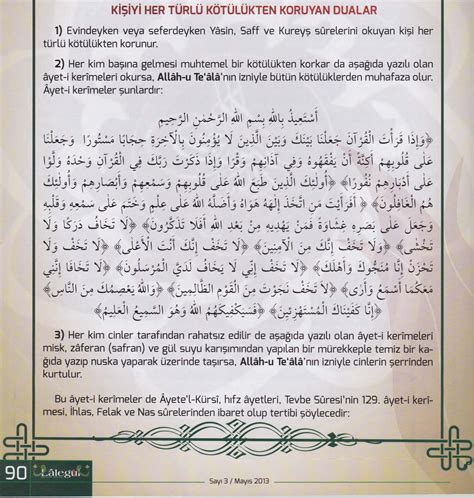 KİŞİYİ HER TÜRLÜ KÖTÜLÜKTEN KORUYAN DUALAR
1) Evindeyken veya seferdeyken Yâsin, Saff ve Kureyş sûrelerini okuyan kişi her
türlü kötülükten korunur.
2) Her kim başına gelmesi muhtemel bir kötülükten korkar da aşağıda yazılı olan
âyet-i kerîmeleri okursa, Allâh-u Te'âlâ'nın izniyle bütün kötülüklerden muhafaza olur.
Âyet-i kerîmeler şunlardır:
أَسْتَعِيذُ بِاللهِ بِسْمِ اللهِ الرَّحْمٰنِ الرَّحِيمِ
﴿وَإِذَا قَرَأْتَ الْقُرْآنَ جَعَلْنَا بَيْنَكَ وَبَيْنَ الَّذِينَ لَا يُؤْمِنُونَ بِالْآخِرَةِ حِجَابًا مَسْتُورًا وَجَعَلْنَا
عَلَى قُلُوبِهِمْ أَكِنَّةً أَنْ يَفْقَهُوهُ وَفِي آذَانِهِمْ وَقْرًا وَإِذَا ذَكَرْتَ رَبَّكَ فِي الْقُرْآنِ وَحْدَهُ وَلَّوْا
عَلَى أَدْبَارِهِمْ نُفُورًا﴾ ﴿أُولٰئِكَ الَّذِينَ طَبَعَ اللهُ عَلَى قُلُوبِهِمْ وَسَمْعِهِمْ وَأَبْصَارِهِمْ وَأُولٰئِكَ
هُمُ الْغَافِلُونَ﴾ ﴿أَفَرَأَيْتَ مَنِ اتَّخَذَ إِلٰهَهُ هَوَاهُ وَأَضَلَّهُ اللهُ عَلَى عِلْمٍ وَخَتَمَ عَلَى سَمْعِهِ وَقَلْبِهِ
وَجَعَلَ عَلَى بَصَرِهِ غِشَاوَةً فَمَنْ يَهْدِيهِ مِنْ بَعْدِ اللهِ أَفَلَا تَذَكَّرُونَ﴾ ﴿لَا تَخَافُ دَرَكًا وَلَا
تَخْشَى﴾ ﴿لَا تَخَفْ إِنَّكَ مِنَ الْآمِنِينَ﴾ ﴿لَا تَخَفْ إِنَّكَ أَنْتَ الْأَعْلَى﴾ ﴿لَا تَخَفْ وَلَا
تَحْزَنْ إِنَّا مُنَجُّوكَ وَأَهْلَكَ﴾ ﴿لَا تَخَفْ إِنِّي لَا يَخَافُ لَدَيَّ الْمُرْسَلُونَ﴾ ﴿لَا تَخَافَا إِنَّنِي
مَعَكُمَا أَسْمَعُ وَأَرَى﴾ ﴿لَا تَخَفْ نَجَوْتَ مِنَ الْقَوْمِ الظَّالِمِينَ﴾ ﴿وَاللهُ يَعْصِمُكَ مِنَ النَّاسِ﴾
﴿إِنَّا كَفَيْنَاكَ الْمُسْتَهْزِئِينَ﴾ ﴿فَسَيَكْفِيكَهُمُ اللهُ وَهُوَ السَّمِيعُ الْعَلِيمُ﴾
3) Her kim cinler tarafından rahatsız edilir de aşağıda yazılı olan âyet-i kerîmeleri
misk, zâferan (safran) ve gül suyu karışımından yapılan bir mürekkeple temiz bir ka-
ğıda yazıp nuska yaparak üzerinde taşırsa, Allah-u Te'âlâ'nın izniyle cinlerin şerrinden
kurtulur.
Bu âyet-i kerîmeler de Âyete'l-Kürsî, hıfz âyetleri, Tevbe Sûresi'nin 129. âyet-i kerî-
mesi, İhlas, Felak ve Nas sûrelerinden ibaret olup tertibi şöylecedir:
90 Lâlegül
Sayı 3 / Mayıs 2013